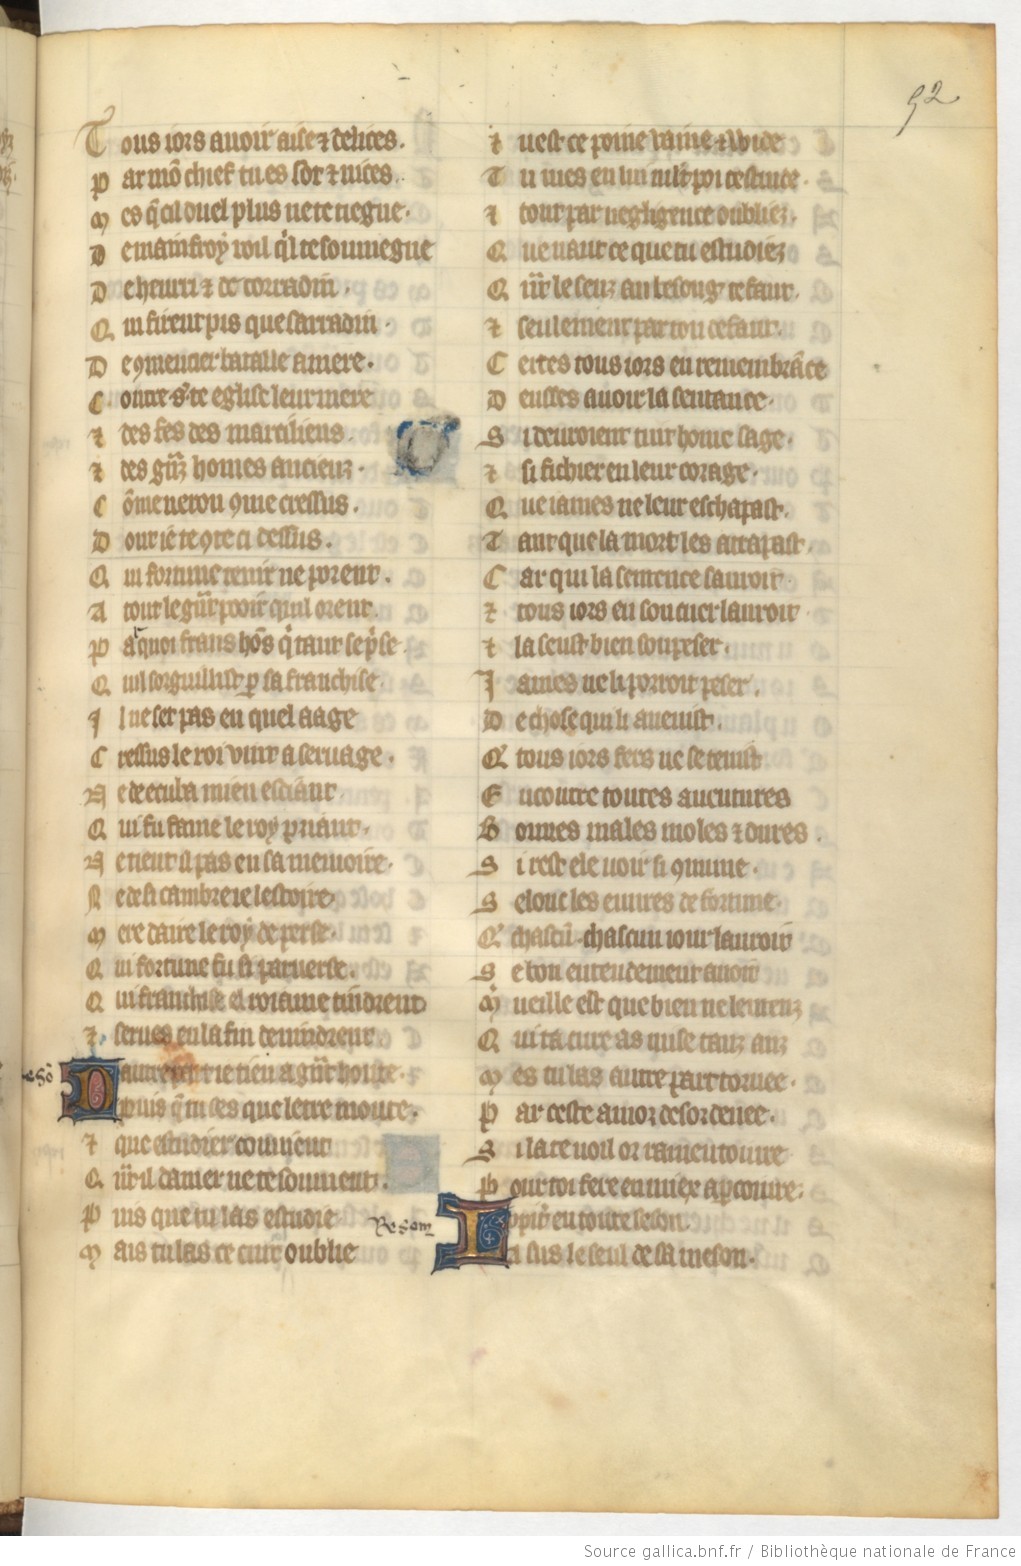 52
Tous iors auoir aise ⁊ delices.
Par mō chief tu es sot ⁊ nices.
Mes q̄ cil duel plus ne te tiegne.
De mainfroy voil q̄l te souuiegne
De henri ⁊ de corradin.
Qui firent pis que sarradin.
De ꝯmencier bataille amere.
Contre ste eglise leur mere
⁊ des fes des marsiliens.
⁊ des gūz homes anciens.
Cōme nerou ꝯme cressus.
Dont ie te ꝯte ci dessus.
Qui fortune tenir ne porent.
A tout le gūt pooir quil orent.
Pa quoi frans hōs q̄ tant se pise
Quil sorguillist ꝑ sa franchise.
Il ne set pas en quel aage
Cressus le roi vint a seruage.
Ne de ecuba mien esciant
Qui fu fame le roy priant.
Ne tient il pas en sa memoire.
Ne de sicambre lestoire
Mere daire le roy de perse.
Qui fortune fu si paruerse.
Qui franchise et roiaume tindrent
⁊ serues en la fin deuindrent
Dautre part ie tien a gūt honte.
puis q̄ tu ses que letre monte.
⁊ que estudier couuient
Qūt il damer ne te souuient.
Puis que tu las estudie
Mais tu las ce cuit oublie
⁊ nest ce poine vaine ⁊ vuide
Tu mes en liures testuide.
⁊ tout par negligence oubliez.
Que vaut ce que tu estudiez
Qūt le sens au besong te faut.
⁊ seulement par ton defaut.
Certes tous iors en remembrāce
Deusses auoir la sentance.
Si deuroient tuit home sage.
⁊ si fichier en leur corage.
Que iames ne leur eschapast.
Tant que la mort les attapast.
Car qui la sentence sauroit
⁊ tous iors en son cuer lauroit.
⁊ la seust bien soupeser.
Iames ne li porroit peser.
De chose qui li auenist.
Q̄ tous iors fers ne se tenist
Encontre toutes auentures
Bonnes males moles ⁊ dures.
Si rest ele uoir si ꝯmune.
Selonc les euures de fortune.
Q̄ chascū chascun iour lauroit
Se bon entendement auoit
M̄ueille est que bien ne lentenz
Qui ta cure as mise tanz anz
Mes tu las autre part tornee.
Par ceste amor desordenee.
Si la te voil or ramentoiure
Pour toi fere en miex aꝑcoiure.
Iupiter en toute seson.
a sus le seul de sa meson.
Resom